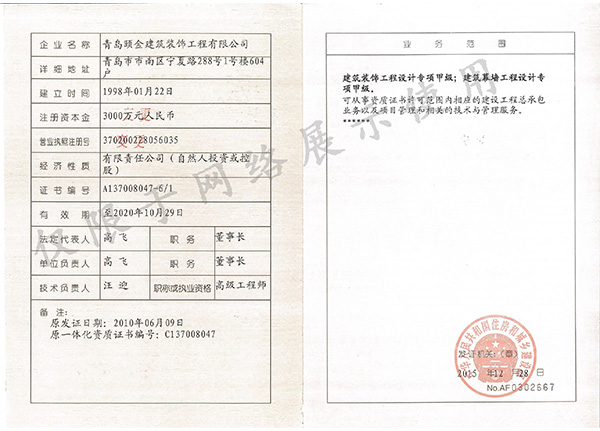 企业名称 青岛颐金建筑装饰工程有限公司
详细地址 青岛市市南区宁夏路288号1号楼604
户
建立时间 1998年01月22日
注册资本金 3000万元人民币
营业执照注册号 370200228056035
经济性质 有限责任公司(自然人投资或控
股)
证书编号 A137008047-6/1
有效期 至2020年10月29日
法定代表人 高飞 职务 董事长
单位负责人 高飞 职务 董事长
技术负责人 汪迎 职称或执业资格 高级工程师
备注:
原发证日期:2010年06月09日
原一体化资质证书编号:C137008047
业务范围
建筑装饰工程设计专项甲级;建筑幕墙工程设计专
项甲级。
可从事资质证书许可范围内相应的建设工程总承包
业务以及项目管理和相关的技术与管理服务。
******
仅限于网络展示使用
中华人民共和国住房和城乡建设部
发证机关:(章)
2015年12月28日
No.AF0302667